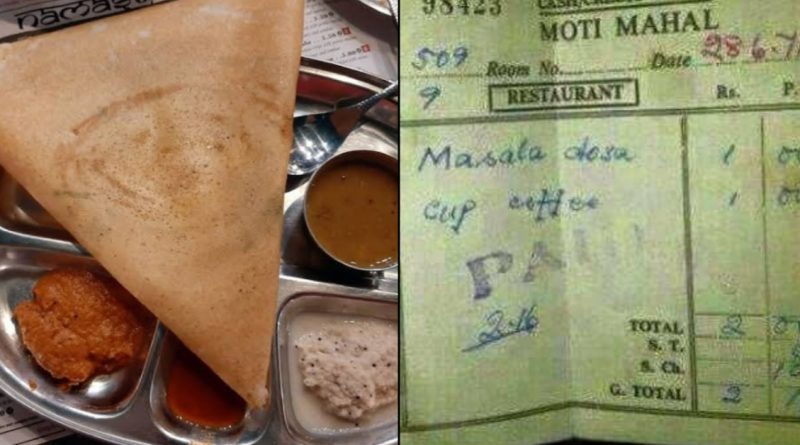 NAMAST
98423
CASH/CREDIT
MOTI MAHAL
509 Room No. Date 28.6.7
9 RESTAURANT Rs. P.
Masala dosa 1 00
cup coffee 1 00
PAID
2.16
TOTAL 2 0
S. T.
S. Ch. 1
G. TOTAL 2 1